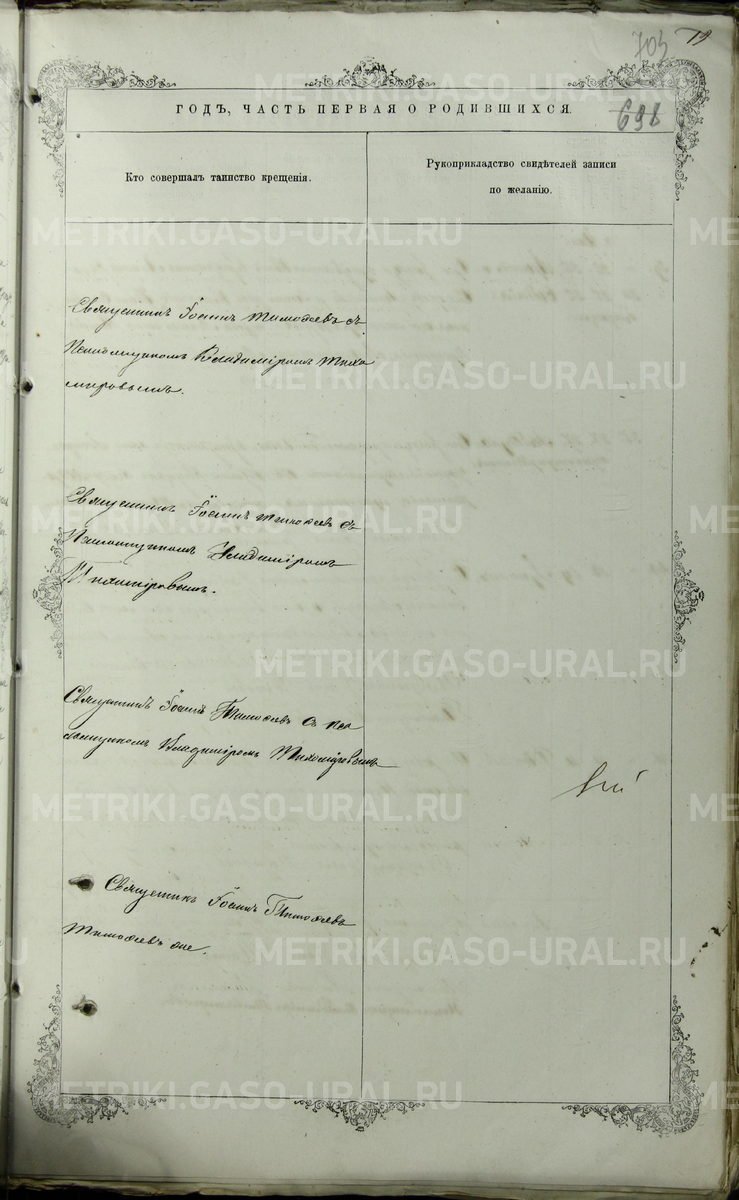 703
19
698
ГОДЪ, ЧАСТЬ ПЕРВАЯ О РОДИВШИХСЯ.
Кто совершалъ таинство крещенія.
Рукоприкладство свидѣтелей записи
по желанію.
Священникъ Іоаннъ Тимофеевъ съ
Псаломщикомъ Владиміромъ Тихо
мировымъ.
Священникъ Іоаннъ Тимофеевъ съ
Псаломщикомъ Владиміромъ
Тихомировымъ.
Священникъ Іоаннъ Тимофеевъ съ пса
ломщикомъ Владиміромъ Тихомировымъ
Священникъ Іоаннъ Тимофеевъ
Тимофеевъ
METRIKI.GASO-URAL.RU